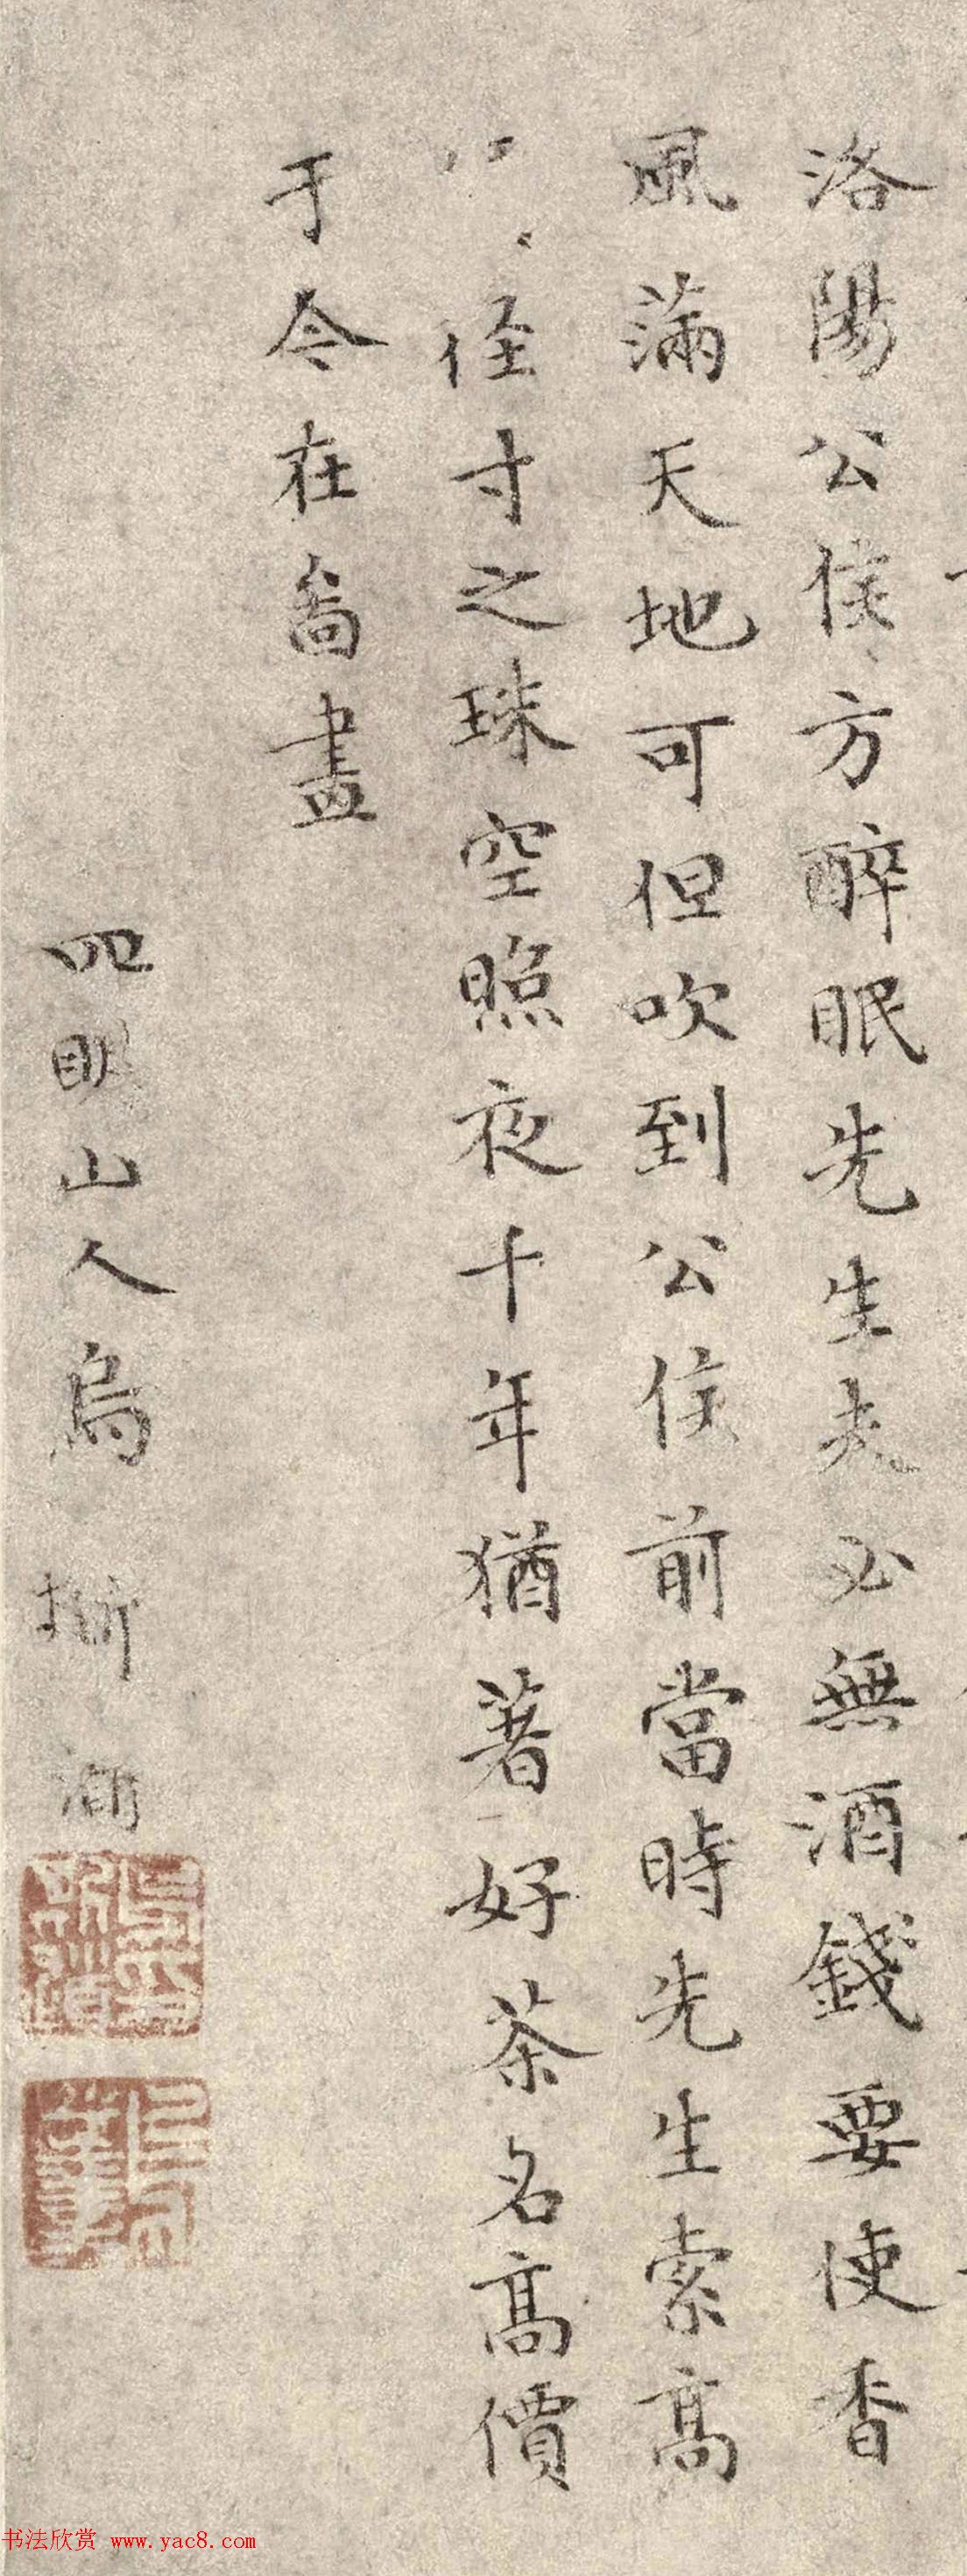 洛陽公侯方醉眠先生夫必無酒錢要使香
風滿天地可但吹到公侯前當時先生索高
徑寸之珠空照夜十年猶著好茶名高價
于今在啚畫
四明山人烏斯道
書法欣赏 www.yac8.com